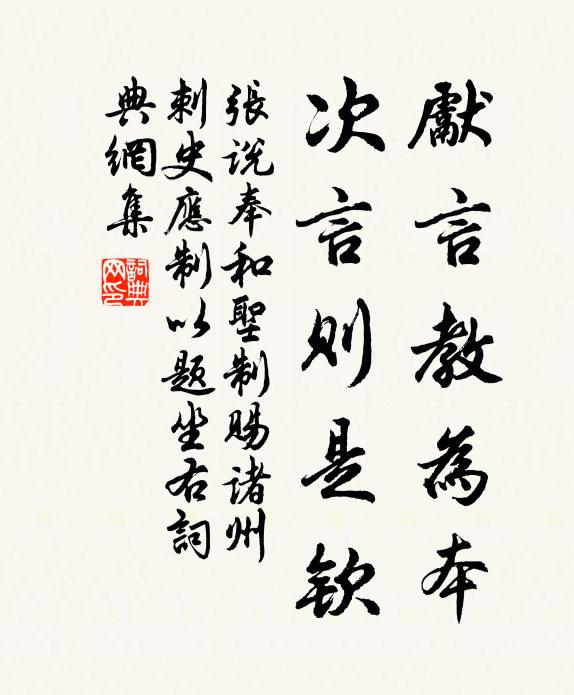 獻言教為本
次言則是欽
張說奉和聖制賜諸州
刺史應制以題坐右詞
典網集
詞典网印